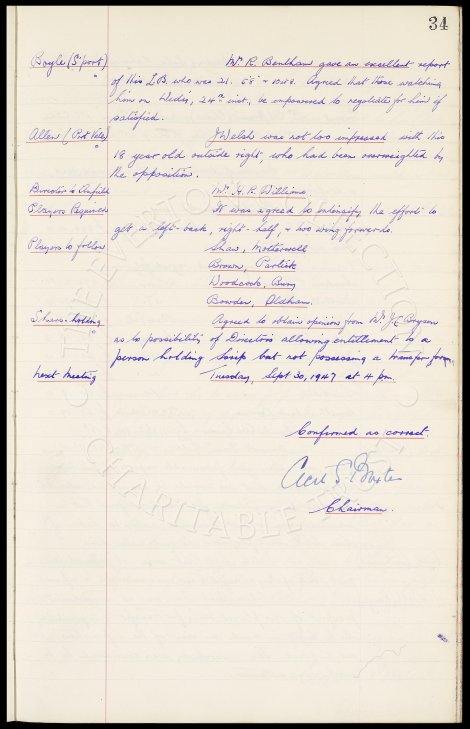 34
Boyle (S'port) Mr. R. Bentham gave an excellent report
of this L.B. who was 21. 5'8" & 10st 8. Agreed that those watching
him on Weds, 24th inst, be empowered to negotiate for him if
satisfied.
Allen (Port Vale) J Welsh was not too impressed with this
18 year old outside right, who had been overweighted by
the opposition.
Director to Anfield Mr. G. R. Williams
Players Required It was agreed to intensify the efforts to
get a left-back, right-half, & two wing forwards.
Players to follow Shaw, Motherwell
Brown, Partick
Woodcock, Bury
Bowden, Oldham.
Share-holding Agreed to obtain opinion from Mr. J.C Bryson
as to possibility of Directors allowing entitlement to a
person holding Scrip but not possessing a transfer form.
Next Meeting Tuesday, Sept 30, 1947 at 4 pm.
Confirmed as correct.
Cecil S Baxter
Chairman.
THE EVERTON COLLECTION
CHARITABLE TRUST